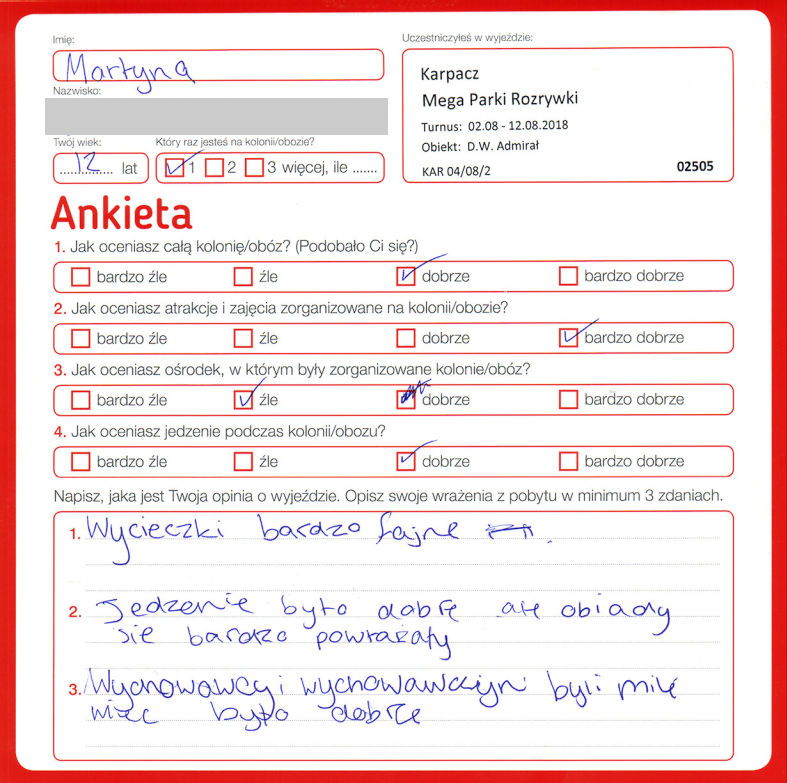 Imię:
Martyna
Nazwisko:
Twój wiek:
12 lat
Który raz jesteś na kolonii/obozie?
1 2 3 więcej, ile .......
Uczestniczyłeś w wyjeździe:
Karpacz
Mega Parki Rozrywki
Turnus: 02.08 - 12.08.2018
Obiekt: D.W. Admirał
KAR 04/08/2 02505
Ankieta
1. Jak oceniasz całą kolonię/obóz? (Podobało Ci się?)
bardzo źle źle dobrze bardzo dobrze
2. Jak oceniasz atrakcje i zajęcia zorganizowane na kolonii/obozie?
bardzo źle źle dobrze bardzo dobrze
3. Jak oceniasz ośrodek, w którym były zorganizowane kolonie/obóz?
bardzo źle źle dobrze bardzo dobrze
4. Jak oceniasz jedzenie podczas kolonii/obozu?
bardzo źle źle dobrze bardzo dobrze
Napisz, jaka jest Twoja opinia o wyjeździe. Opisz swoje wrażenia z pobytu w minimum 3 zdaniach.
1. Wycieczki bardzo fajne .
2. Jedzenie było dobrę ale obiady
sie bardzo powtażały
3. Wychowawcy i wychowawczyni byli mile
wiec było dobrze